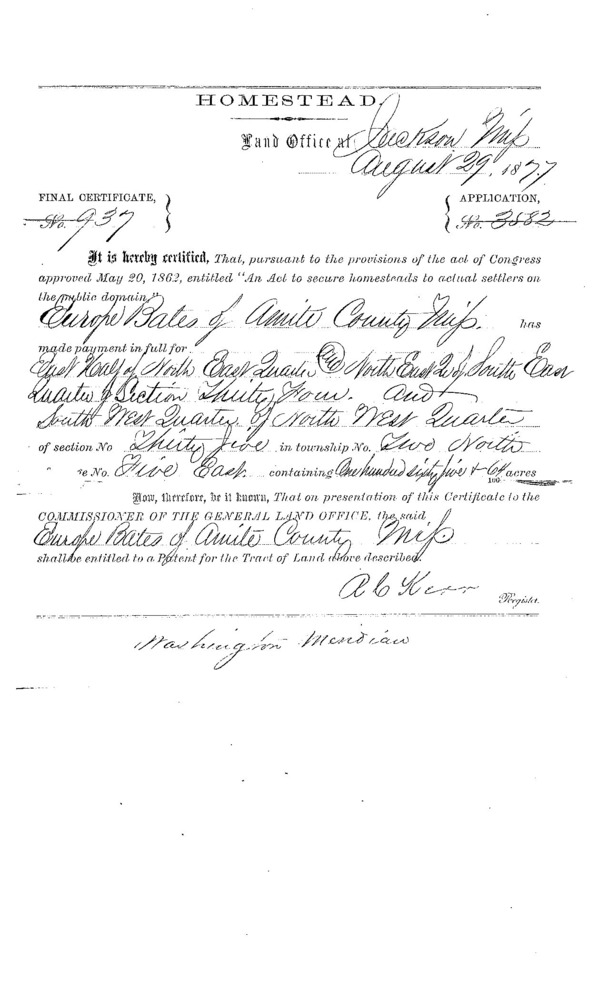 HOMESTEAD.
Land Office at Jackson Miſs
August 29, 1877.
FINAL CERTIFICATE, No. 937
APPLICATION, No. 3882
It is hereby certified, That, pursuant to the provisions of the act of Congress
approved May 20, 1862, entitled "An Act to secure homesteads to actual settlers on
the public domain,"
Europe Bates of Amite County Miſs. has
made payment in full for
East Half of North East Quarter and North East Qr of South East
Quarter of Section Thirty Four. And
South West Quarter of North West Quarter
of section No Thirty five in township No. Two North
e No. Five East. containing One hundred sixty five & 64/100 acres
Now, therefore, be it known, That on presentation of this Certificate to the
COMMISSIONER OF THE GENERAL LAND OFFICE, the said
Europe Bates of Amite County Miſs
shall be entitled to a Patent for the Tract of Land above described.
A C Kerr
Register.
Washington Meridian